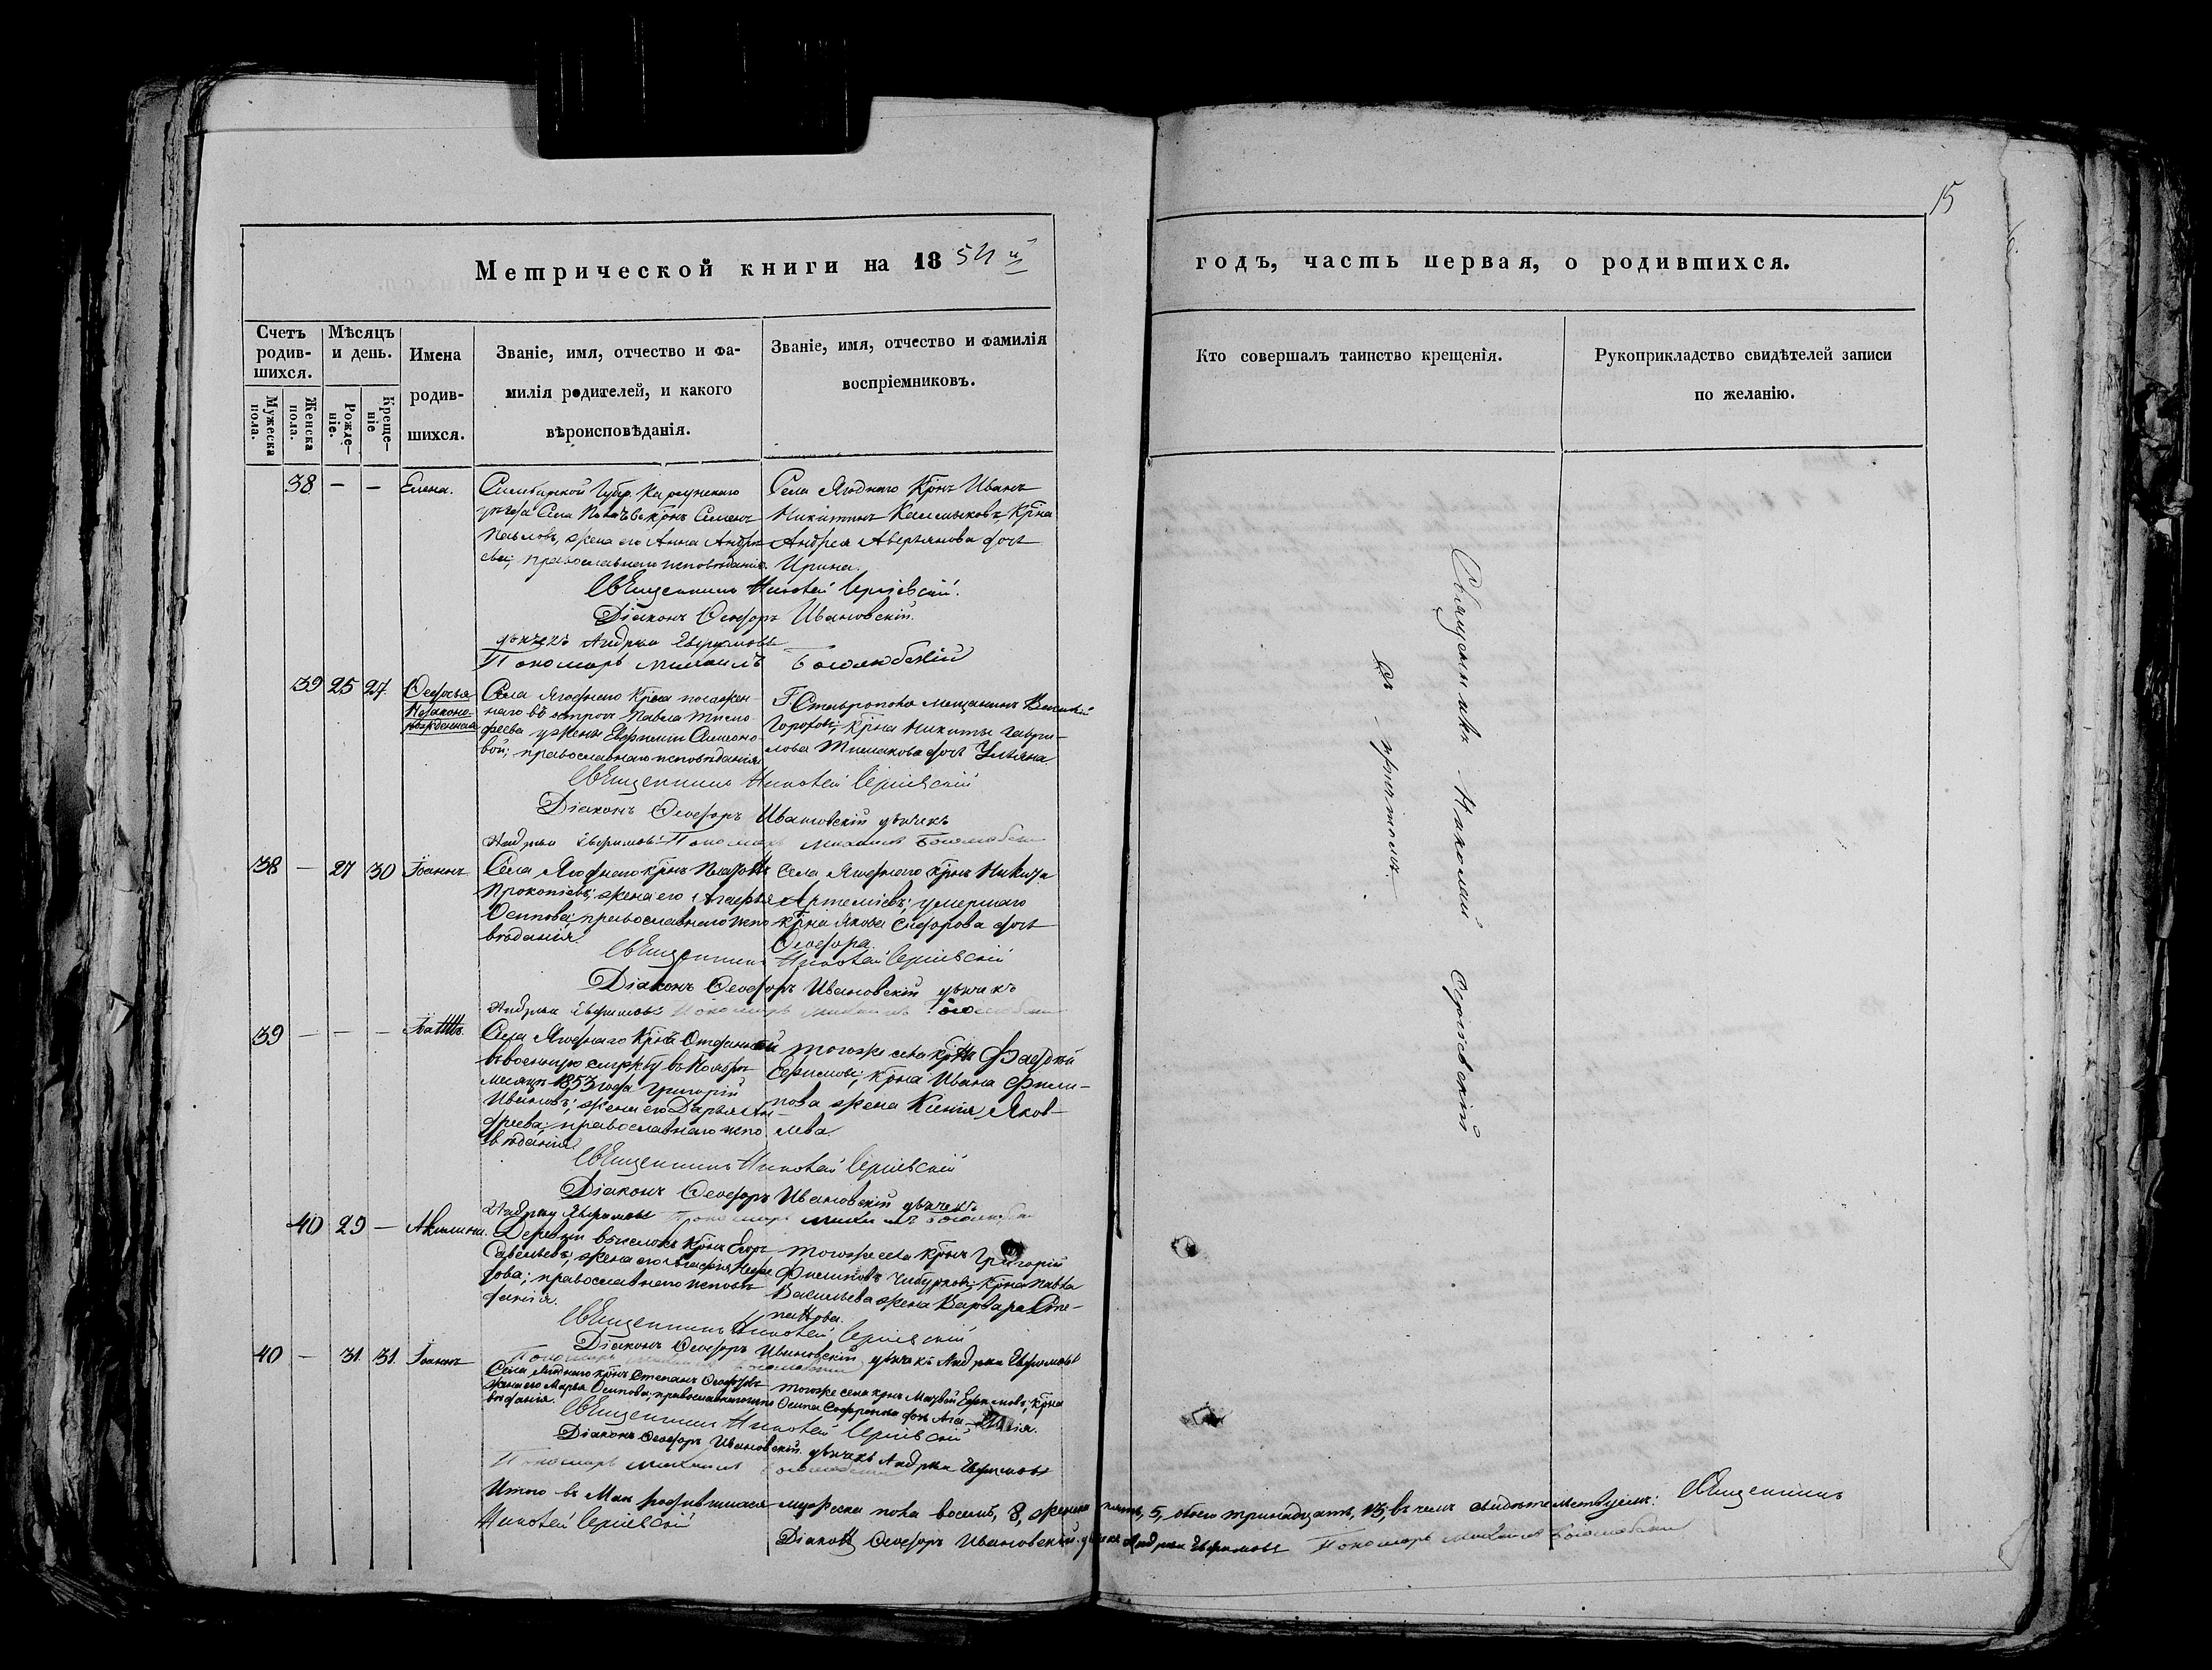 15
Метрической книги на 1854 й
годъ, часть первая, о родившихся.
Счетъ родив-шихся.
Мужеска пола.
Женска пола.
Мѣсяцъ и день.
Рожде-ніе.
Креще-ніе
Имена
родив-
шихся.
Званіе, имя, отчество и фа-
милія родителей, и какого
вѣроисповѣданія.
Званіе, имя, отчество и фамилія
воспріемниковъ.
Кто совершалъ таинство крещенія.
Рукоприкладство свидѣтелей записи
по желанію.
38 — — Елена.
Симбирской Губер. Карсунскаго
уѣзда Села крнъ Семенъ
Павловъ, жена его Анна Андре-
ева; православнаго исповѣданія.
Села Ягоднаго Крнъ Иванъ
Никитинъ Калмыковъ, Крна
Андрея Аверьянова дочь
Ирина.
Священникъ Николай Сергіевскій.
Діаконъ Ѳеодоръ Ивановскій.
дьячекъ Андрей Ефимовъ
Пономарь Михаилъ Боголюбскій
39 25 27 Ѳедосья
Незаконо-
рожденная
Села Ягоднаго Крна посажен-
наго въ острогъ Павла Тимо-
феева у жены Евфиміи Симоно-
вой; православнаго исповѣданія
Г. Ставрополя мещанинъ Василій
Горохов; крна Никиты Гаври-
лова Тимакова дочь Ульяна.
Священникъ Николай Сергіевскій
Діаконъ Ѳеодоръ Ивановскій дьячекъ
Андрей Ефимовъ Пономарь Михаилъ Боголюбскій
38 — 27 30 Іоаннъ
Села Ягоднаго крнъ Платонъ
Прокопіевъ; жена его Агафья
Осипова; православнаго испо-
вѣданія.
Села Ягоднаго крнъ Никита
Артеміевъ; умершаго
крна Якова Сидорова дочь
Ѳеодора.
Священникъ Николай Сергіевскій
Діаконъ Ѳеодоръ Ивановскій дьячекъ
Андрей Ефимовъ Пономарь Михаилъ Боголюбскій
39 — — —
Села Ягоднаго Крнъ Отданный
въ военную службу въ Ноябрѣ
месяцѣ 1853 года Григорій
Ивановъ; жена его Дарья Ан-
дреева; православнаго испо-
вѣданія.
тогоже села крнъ Фаддей
Ефимовъ; крна Ивана Фили-
пова жена Ксенія Яков-
лева.
Священникъ Николай Сергіевскій
Діаконъ Ѳеодоръ Ивановскій дьячекъ
Андрей Ефимовъ Пономарь Михаилъ Боголюбскій
40 29 — Акилина.
Деревни выселокъ Крнъ Егоръ
Савельевъ; жена его Нефе-
дова; православнаго исповѣ-
данія.
тогоже села Крнъ Григорій
Филиповъ; крна Павла
Васильева жена Варвара Сте-
панова.
Священникъ Николай Сергіевскій
Діаконъ Ѳеодоръ Ивановскій дьячекъ Андрей Ефимовъ
Пономарь Михаилъ Боголюбскій
40 — 31. 31. Іоаннъ
Села Ягоднаго крнъ Степанъ Ѳеодоровъ
жена его Марья Осипова; православнаго испо-
вѣданія.
тогоже села крнъ Матвѣй Ефимовъ; крна
Осипа Софронова дочь
Священникъ Николай Сергіевскій
Діаконъ Ѳеодоръ Ивановскій дьячекъ Андрей Ефимовъ
Пономарь Михаилъ Боголюбскій
Итого въ Маѣ родившихся мужеска пола восемь, 8, женска пять, 5, обоего тринадцать, 13; въ чемъ свидѣтельствуемъ: Священникъ
Николай Сергіевскій
Діаконъ Ѳеодоръ Ивановскій дьячекъ Андрей Ефимовъ Пономарь Михаилъ Боголюбскій
Священникъ Николай Сергіевскій
съ причтомъ.